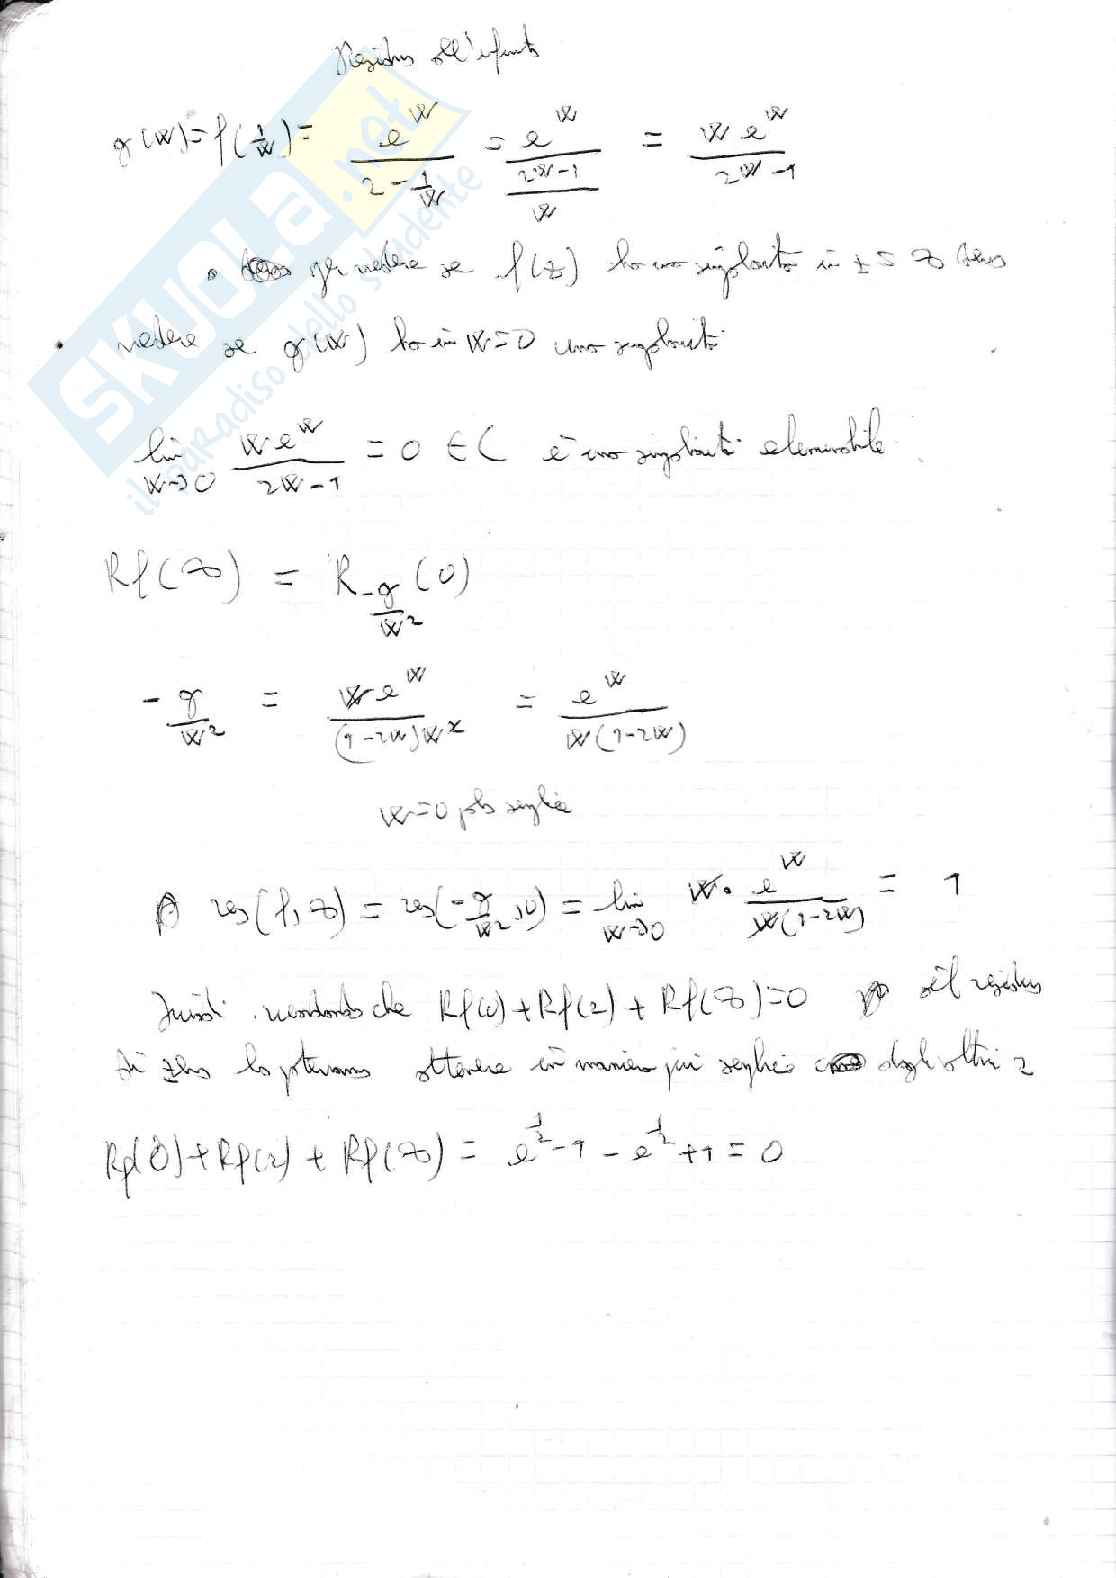 Residuo all'infinito
g(w) = f(1/w) = e^w / (2 - 1/w) = e^w / ((2w-1)/w) = w e^w / (2w-1)
per vedere se f(z) ha una singolarità in z = ∞ devo
vedere se g(w) ha in w=0 una singolarità
lim w→0 w e^w / (2w-1) = 0 ∈ C è una singolarità eliminabile
Rf(∞) = R -g/w² (0)
-g/w² = w e^w / ((1-2w)w²) = e^w / (w(1-2w))
w=0 polo semplice
res(f,∞) = res(-g/w²,0) = lim w→0 w · e^w / (w(1-2w)) = 1
che Rf(0) + Rf(2) + Rf(∞) = 0 il residuo
di lo potevamo ottenere in maniera più semplice dagli altri 2
Rf(0) + Rf(2) + Rf(∞) = e^1/2 - 1 - e^1/2 + 1 = 0
SKUOLA.net
il paradiso dello studente